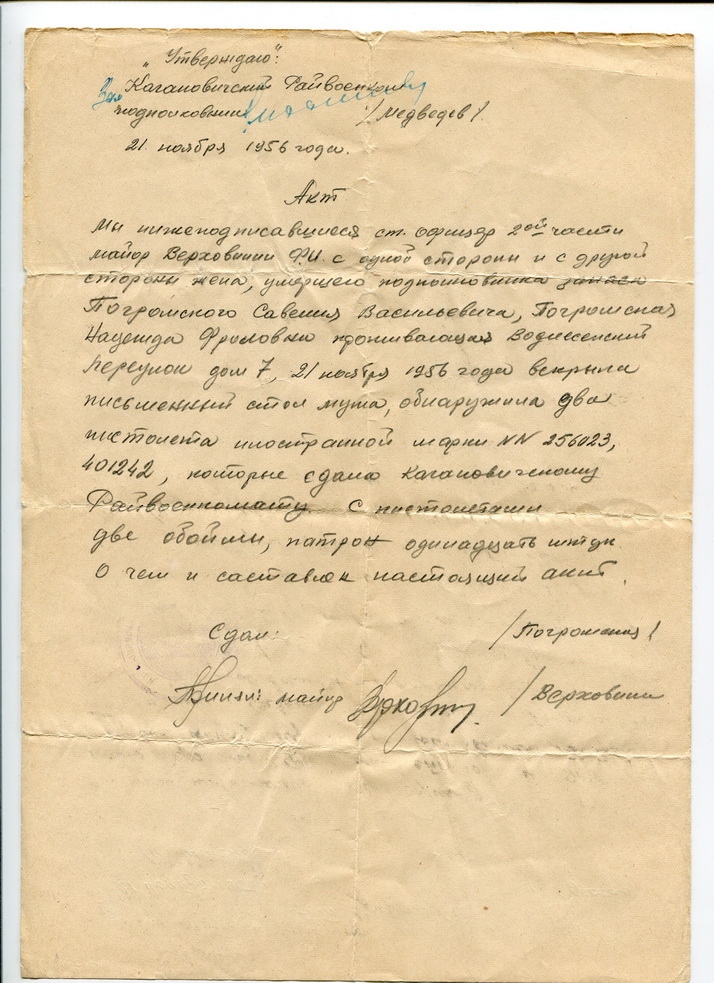 „Утверждаю":
Зам Кагановический Райвоенком
подполковник /Медведев/.
21. ноября 1956 года.
Акт
Мы нижеподписавшиеся ст. офицер 2ой части
майор Верховинин Ф.И. с одной стороны и с другой
стороны жена, умершего подполковника запаса
Погромского Савелия Васильевича, Погромская
Надежда Фроловна проживающая Вознесенский
переулок дом 7, 21 ноября 1956 года вскрыла
письменный стол мужа, обнаружила два
пистолета иностранной марки NN 256023,
401242, которые сдала Кагановическому
Райвоенкомату. С пистолетами
две обоймы, патрон одинадцать штук
О чем и саставлен настоящий акт.
Сдал: /Погромская/
Принял: майор /Верховинин